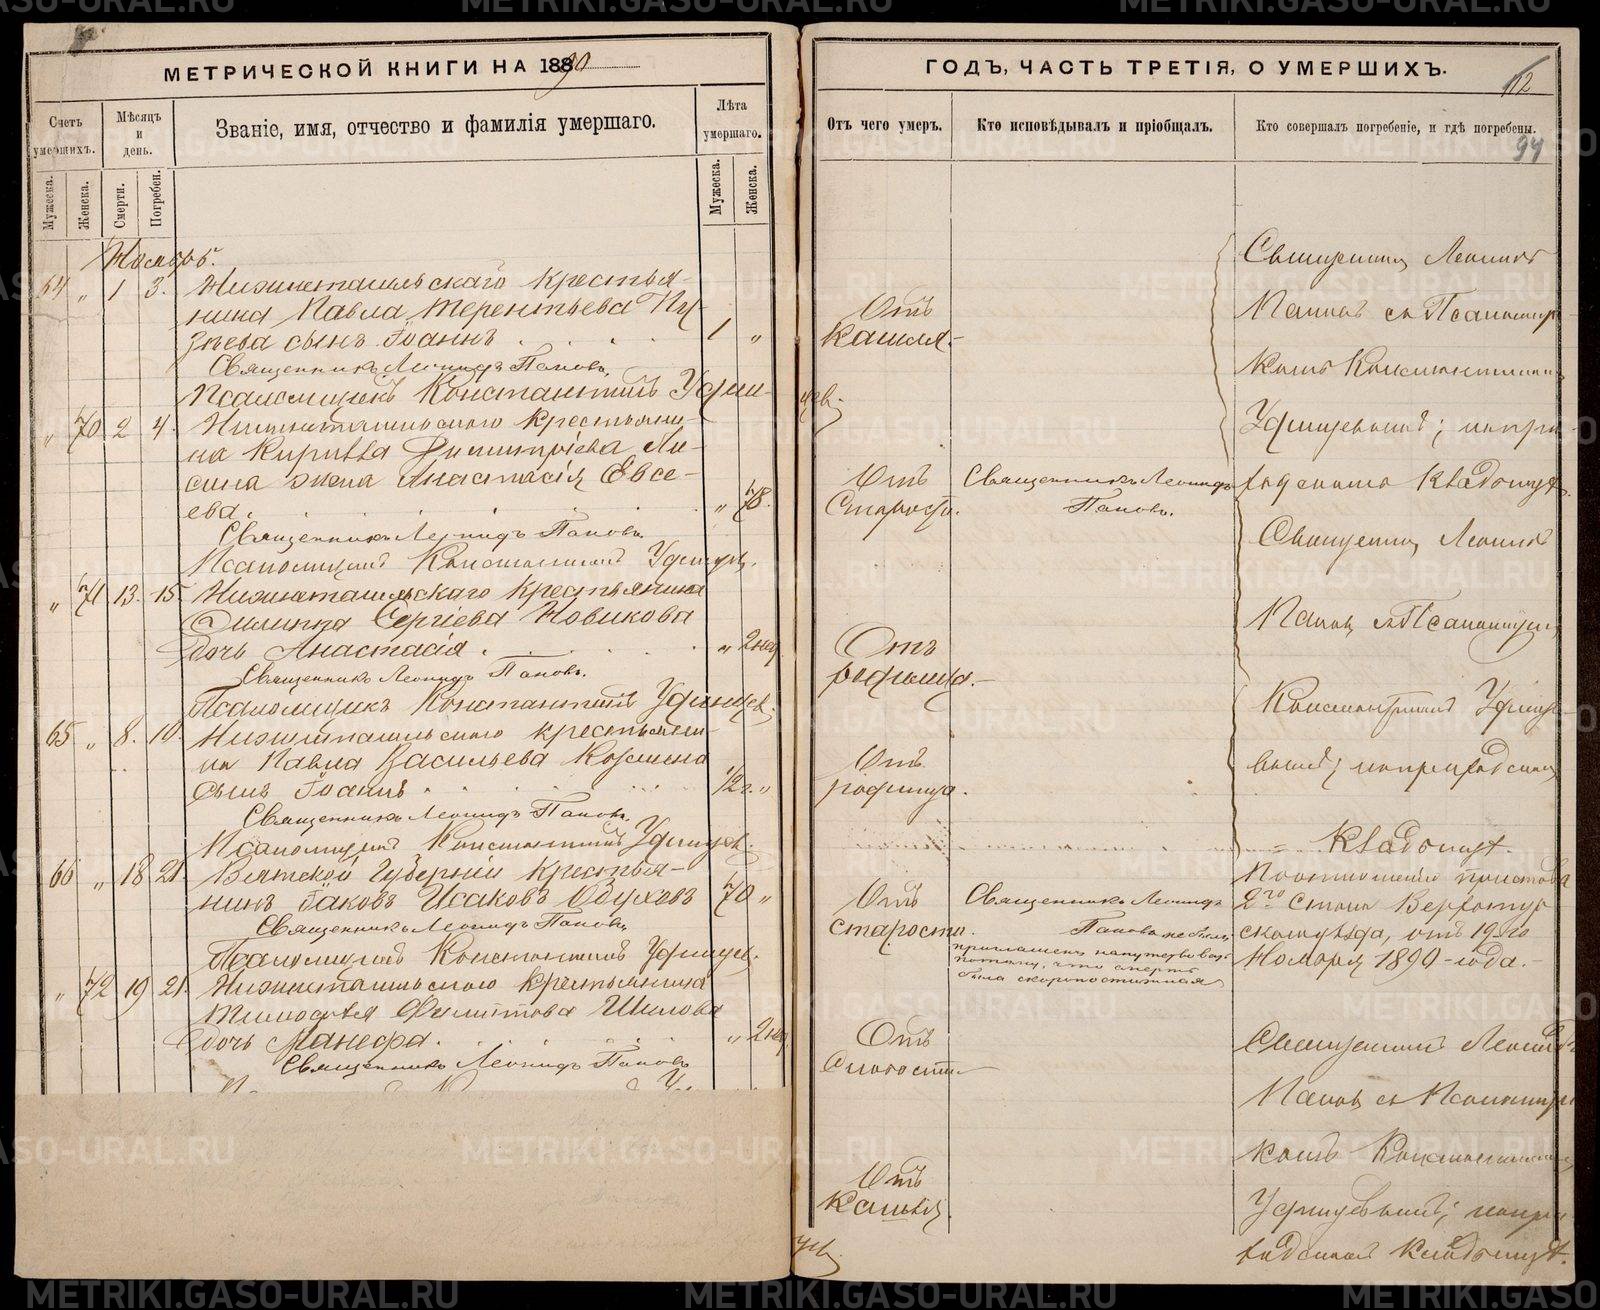 МЕТРИЧЕСКОЙ КНИГИ НА 1890
ГОДЪ, ЧАСТЬ ТРЕТІЯ, О УМЕРШИХЪ.
112
94
Счетъ умершихъ.
Мѣсяцъ и день.
Званіе, имя, отчество и фамилія умершаго.
Лѣта умершаго.
Отъ чего умеръ.
Кто исповѣдывалъ и пріобщалъ.
Кто совершалъ погребеніе, и гдѣ погребены.
Мужеска.
Женска.
Смерти.
Погребен.
Мужеска.
Женска.
Ноябрь.
64 " 1 3. Нижнетагильскаго крестья-
нина Павла Терентьева Пу-
зѣева сынъ Іоаннъ 1 "
Отъ
кашля.
Священникъ Леонидъ Поповъ.
Псаломщикъ Константинъ Удин-
цев.
" 70 2 4. Нижнетагильскаго крестьяни-
на Кирилла Димитріева Ли-
сина жена Анастасія Евсе-
ева. " 78.
Отъ
Старости.
Священникъ Леонидъ
Поповъ.
Священникъ Леонидъ Поповъ.
Псаломщикъ Константинъ Удинцев.
" 71 13. 15. Нижнетагильскаго крестьянина
Филиппа Сергіева Новикова
дочь Анастасія " 2 нед
Отъ
родимца.
Священникъ Леонидъ Поповъ.
Псаломщикъ Константинъ Удинцев.
65 " 8. 10. Нижнетагильскаго крестьяни-
на Павла Васильева
сынъ Іоаннъ 1/2 г. "
Отъ
родимца.
Священникъ Леонидъ Поповъ.
Псаломщикъ Константинъ Удинцев.
66 " 18 21. Вятской Губерніи крестья-
нинъ Іаковъ Исаковъ Обуховъ 70 "
Отъ
старости.
Священникъ Леонидъ
Поповъ не былъ
приглашенъ напутствовать
потому, что смерть
была скоропостижная
Священникъ Леонидъ Поповъ.
Псаломщикъ Константинъ Удинцев.
" 72 19 21. Нижнетагильскаго крестьянина
Тимофея Филиппова Шилова
дочь Манефа. " 2 нед
Отъ
слабости
Священникъ Леонидъ Поповъ
Отъ
Кашля.
цев.
Священникъ Леонидъ
Поповъ съ Псаломщи-
комъ Константиномъ
Удинцевымъ; на при-
ходскомъ кладбищѣ.
Священникъ Леонидъ
Поповъ съ Псаломщикомъ
Константиномъ Удинце-
вымъ; на приходскомъ
кладбищѣ.
По отношенію пристава
2го Стана Верхотур-
скаго уѣзда, отъ 19го
Ноября 1890 года.
Священникъ Леонидъ
Поповъ съ Псаломщи-
комъ Константиномъ
Удинцевымъ; на при-
ходскомъ кладбищѣ.
METRIKI.GASO-URAL.RU